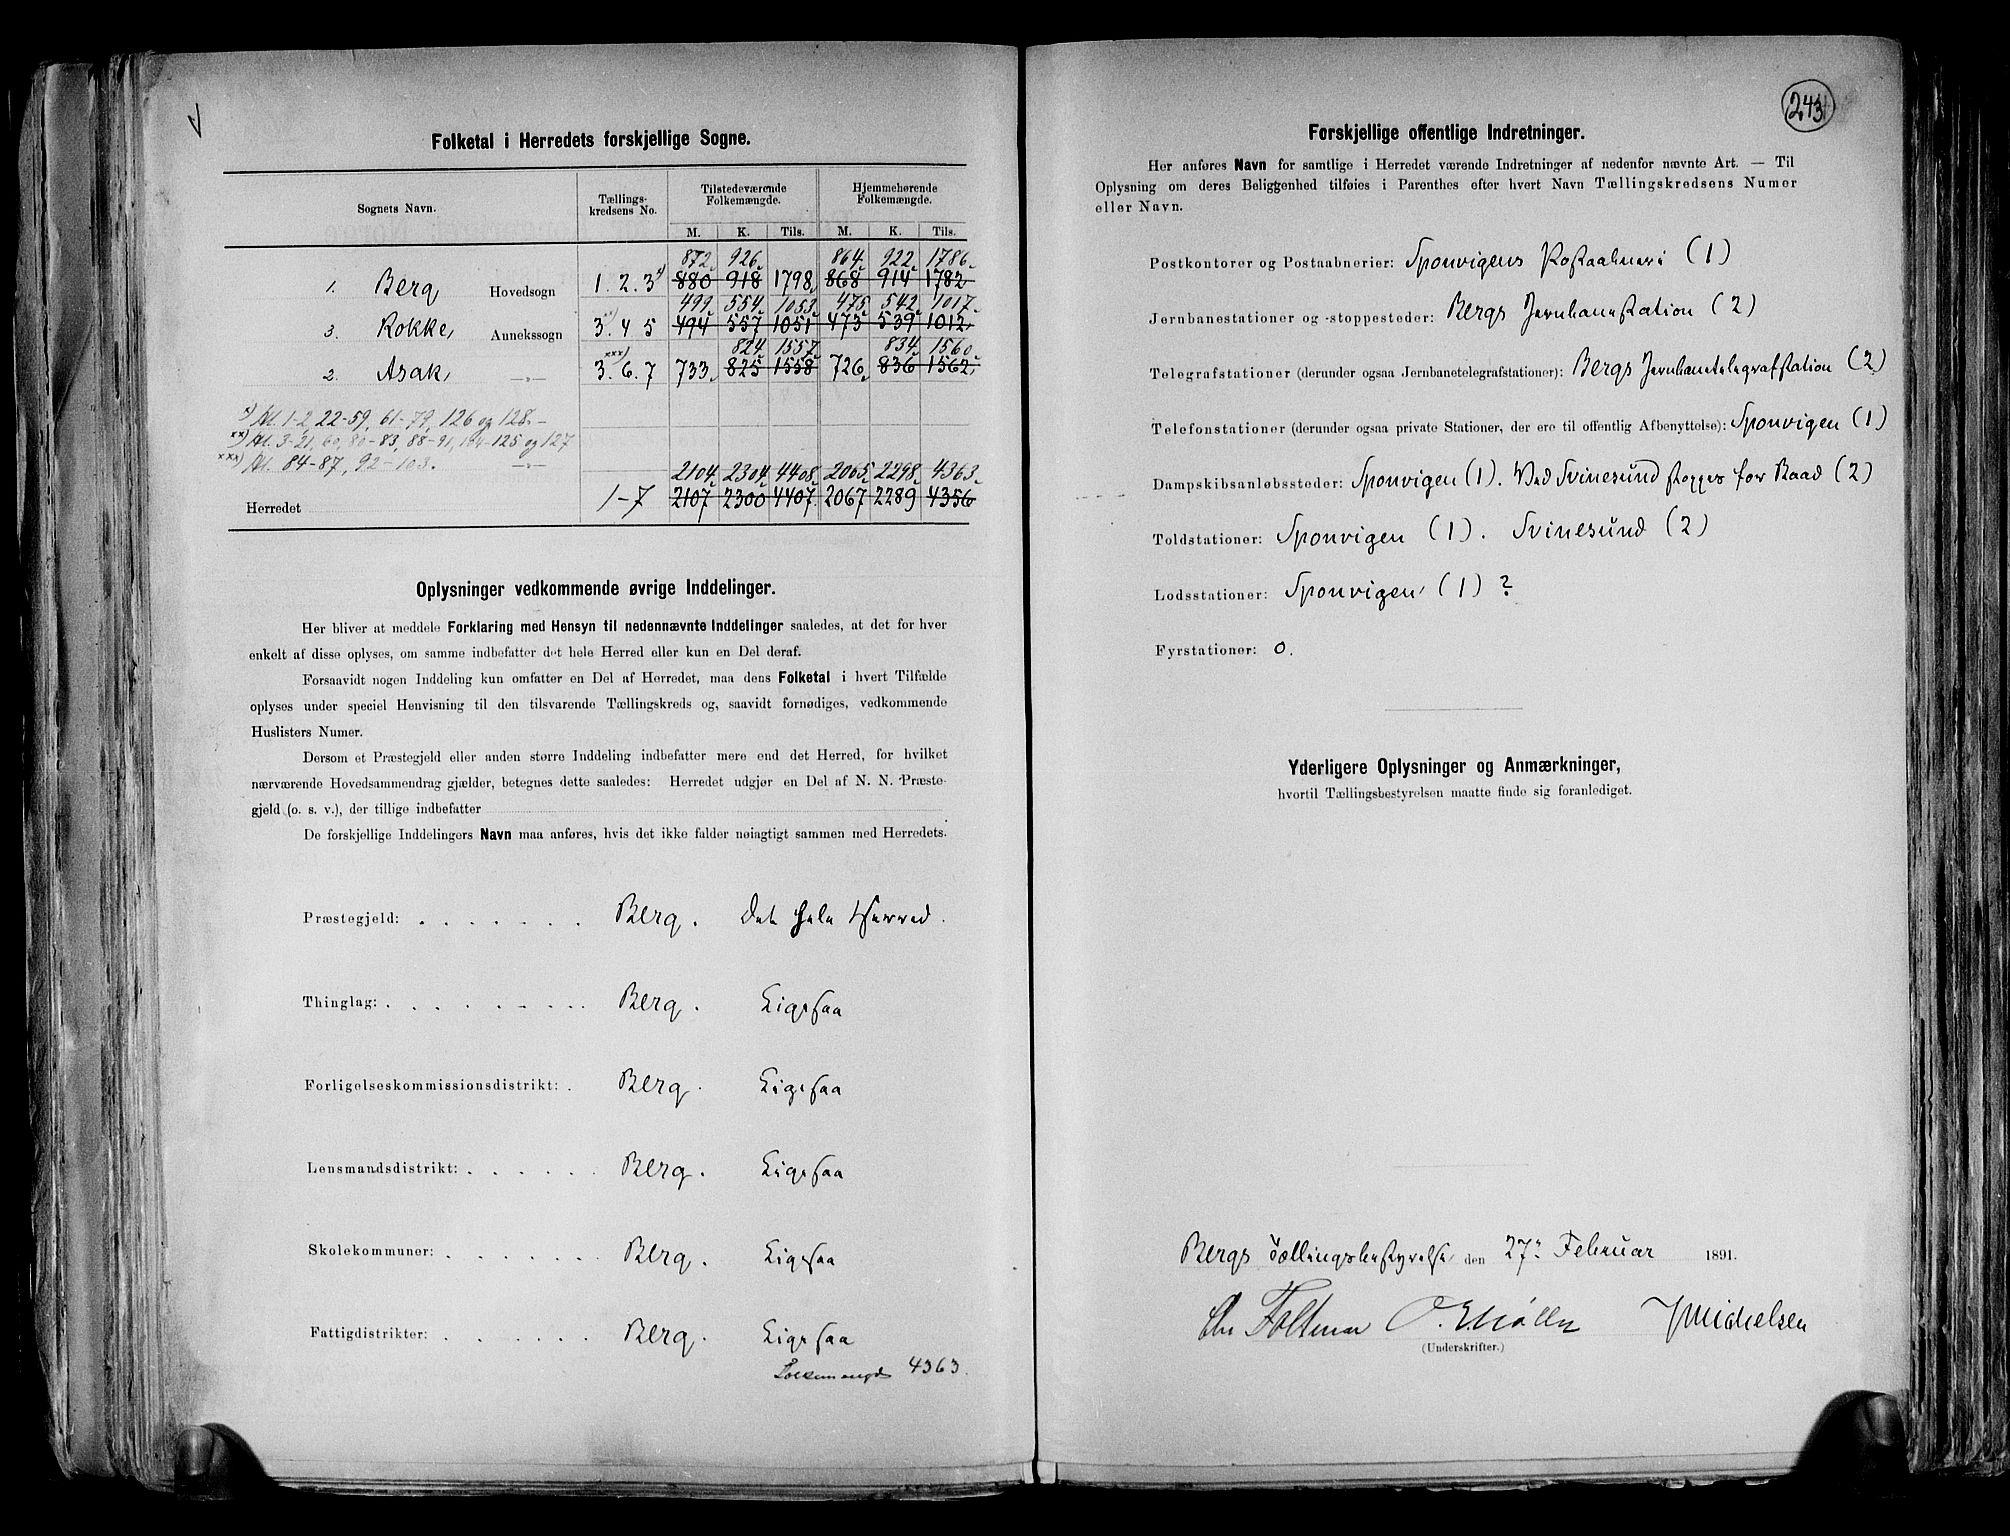 Folketal i Herredets forskjellige Sogne.
Sognets Navn. Tællings-kredsens No. Tilstedeværende Folkemængde. Hjemmehørende Folkemængde.
M. K. Tils. M. K. Tils.
872 926 864 922 1786
1. Berg Hovedsogn 1. 2. 3 x) 880 918 1798 868 914 1782
499 554 1053 475 542 1017
3. Rokke, Annekssogn 3. 4 5 494 557 1051 473 539 1012
824 1557 834 1560
2. Asak, —„— 3. 6. 7 733 825 1558 726 836 1562
x) Hl. 1-2, 22-59, 61-79, 126 og 128. -
xx) Hl. 3-21, 60, 80-83, 88-91, 104-125 og 127
xxx) Hl. 84-87, 92-103. —„—
2104 2304 4408 2065 2298 4363
Herredet 1-7 2107 2300 4407 2067 2289 4356
Oplysninger vedkommende øvrige Inddelinger.
Her bliver at meddele Forklaring med Hensyn til nedennævnte Inddelinger saaledes, at det for hver
enkelt af disse oplyses, om samme indbefatter det hele Herred eller kun en Del deraf.
Forsaavidt nogen Inddeling kun omfatter en Del af Herredet, maa dens Folketal i hvert Tilfælde
oplyses under speciel Henvisning til den tilsvarende Tællingskreds og, saavidt fornødiges, vedkommende
Huslisters Numer.
Dersom et Præstegjeld eller anden større Inddeling indbefatter mere end det Herred, for hvilket
nærværende Hovedsammendrag gjælder, betegnes dette saaledes: Herredet udgjør en Del af N. N. Præste-
gjeld (o. s. v.), der tillige indbefatter
De forskjellige Inddelingers Navn maa anføres, hvis det ikke falder nøiagtigt sammen med Herredets.
Præstegjeld: Berg. Det hele Herred.
Thinglag: Berg. Ligesaa
Forligelseskommissionsdistrikt: Berg. Ligesaa
Lensmandsdistrikt: Berg. Ligesaa
Skolekommuner: Berg. Ligesaa
Fattigdistrikter: Berg. Ligesaa
Folkemængde 4363.
243
Forskjellige offentlige Indretninger.
Her anføres Navn for samtlige i Herredet værende Indretninger af nedenfor nævnte Art. — Til
Oplysning om deres Beliggenhed tilføies i Parenthes efter hvert Navn Tællingskredsens Numer
eller Navn.
Postkontorer og Postaabnerier: Sponvigens Postaabneri (1)
Jernbanestationer og -stoppesteder: Bergs Jernbanestation (2)
Telegrafstationer (derunder ogsaa Jernbanetelegrafstationer): Bergs Jernbanetelegrafstation (2)
Telefonstationer (derunder ogsaa private Stationer, der ere til offentlig Afbenyttelse): Sponvigen (1)
Dampskibsanløbssteder: Sponvigen (1). Ved Svinesund stoppes for Baad (2)
Toldstationer: Sponvigen (1). Svinesund (2)
Lodsstationer: Sponvigen (1) ?
Fyrstationer: 0.
Yderligere Oplysninger og Anmærkninger,
hvortil Tællingsbestyrelsen maatte finde sig foranlediget.
Bergs Tællingsbestyrelse den 27de Februar 1891.
Chr Foltmar Michelsen
(Underskrifter.)